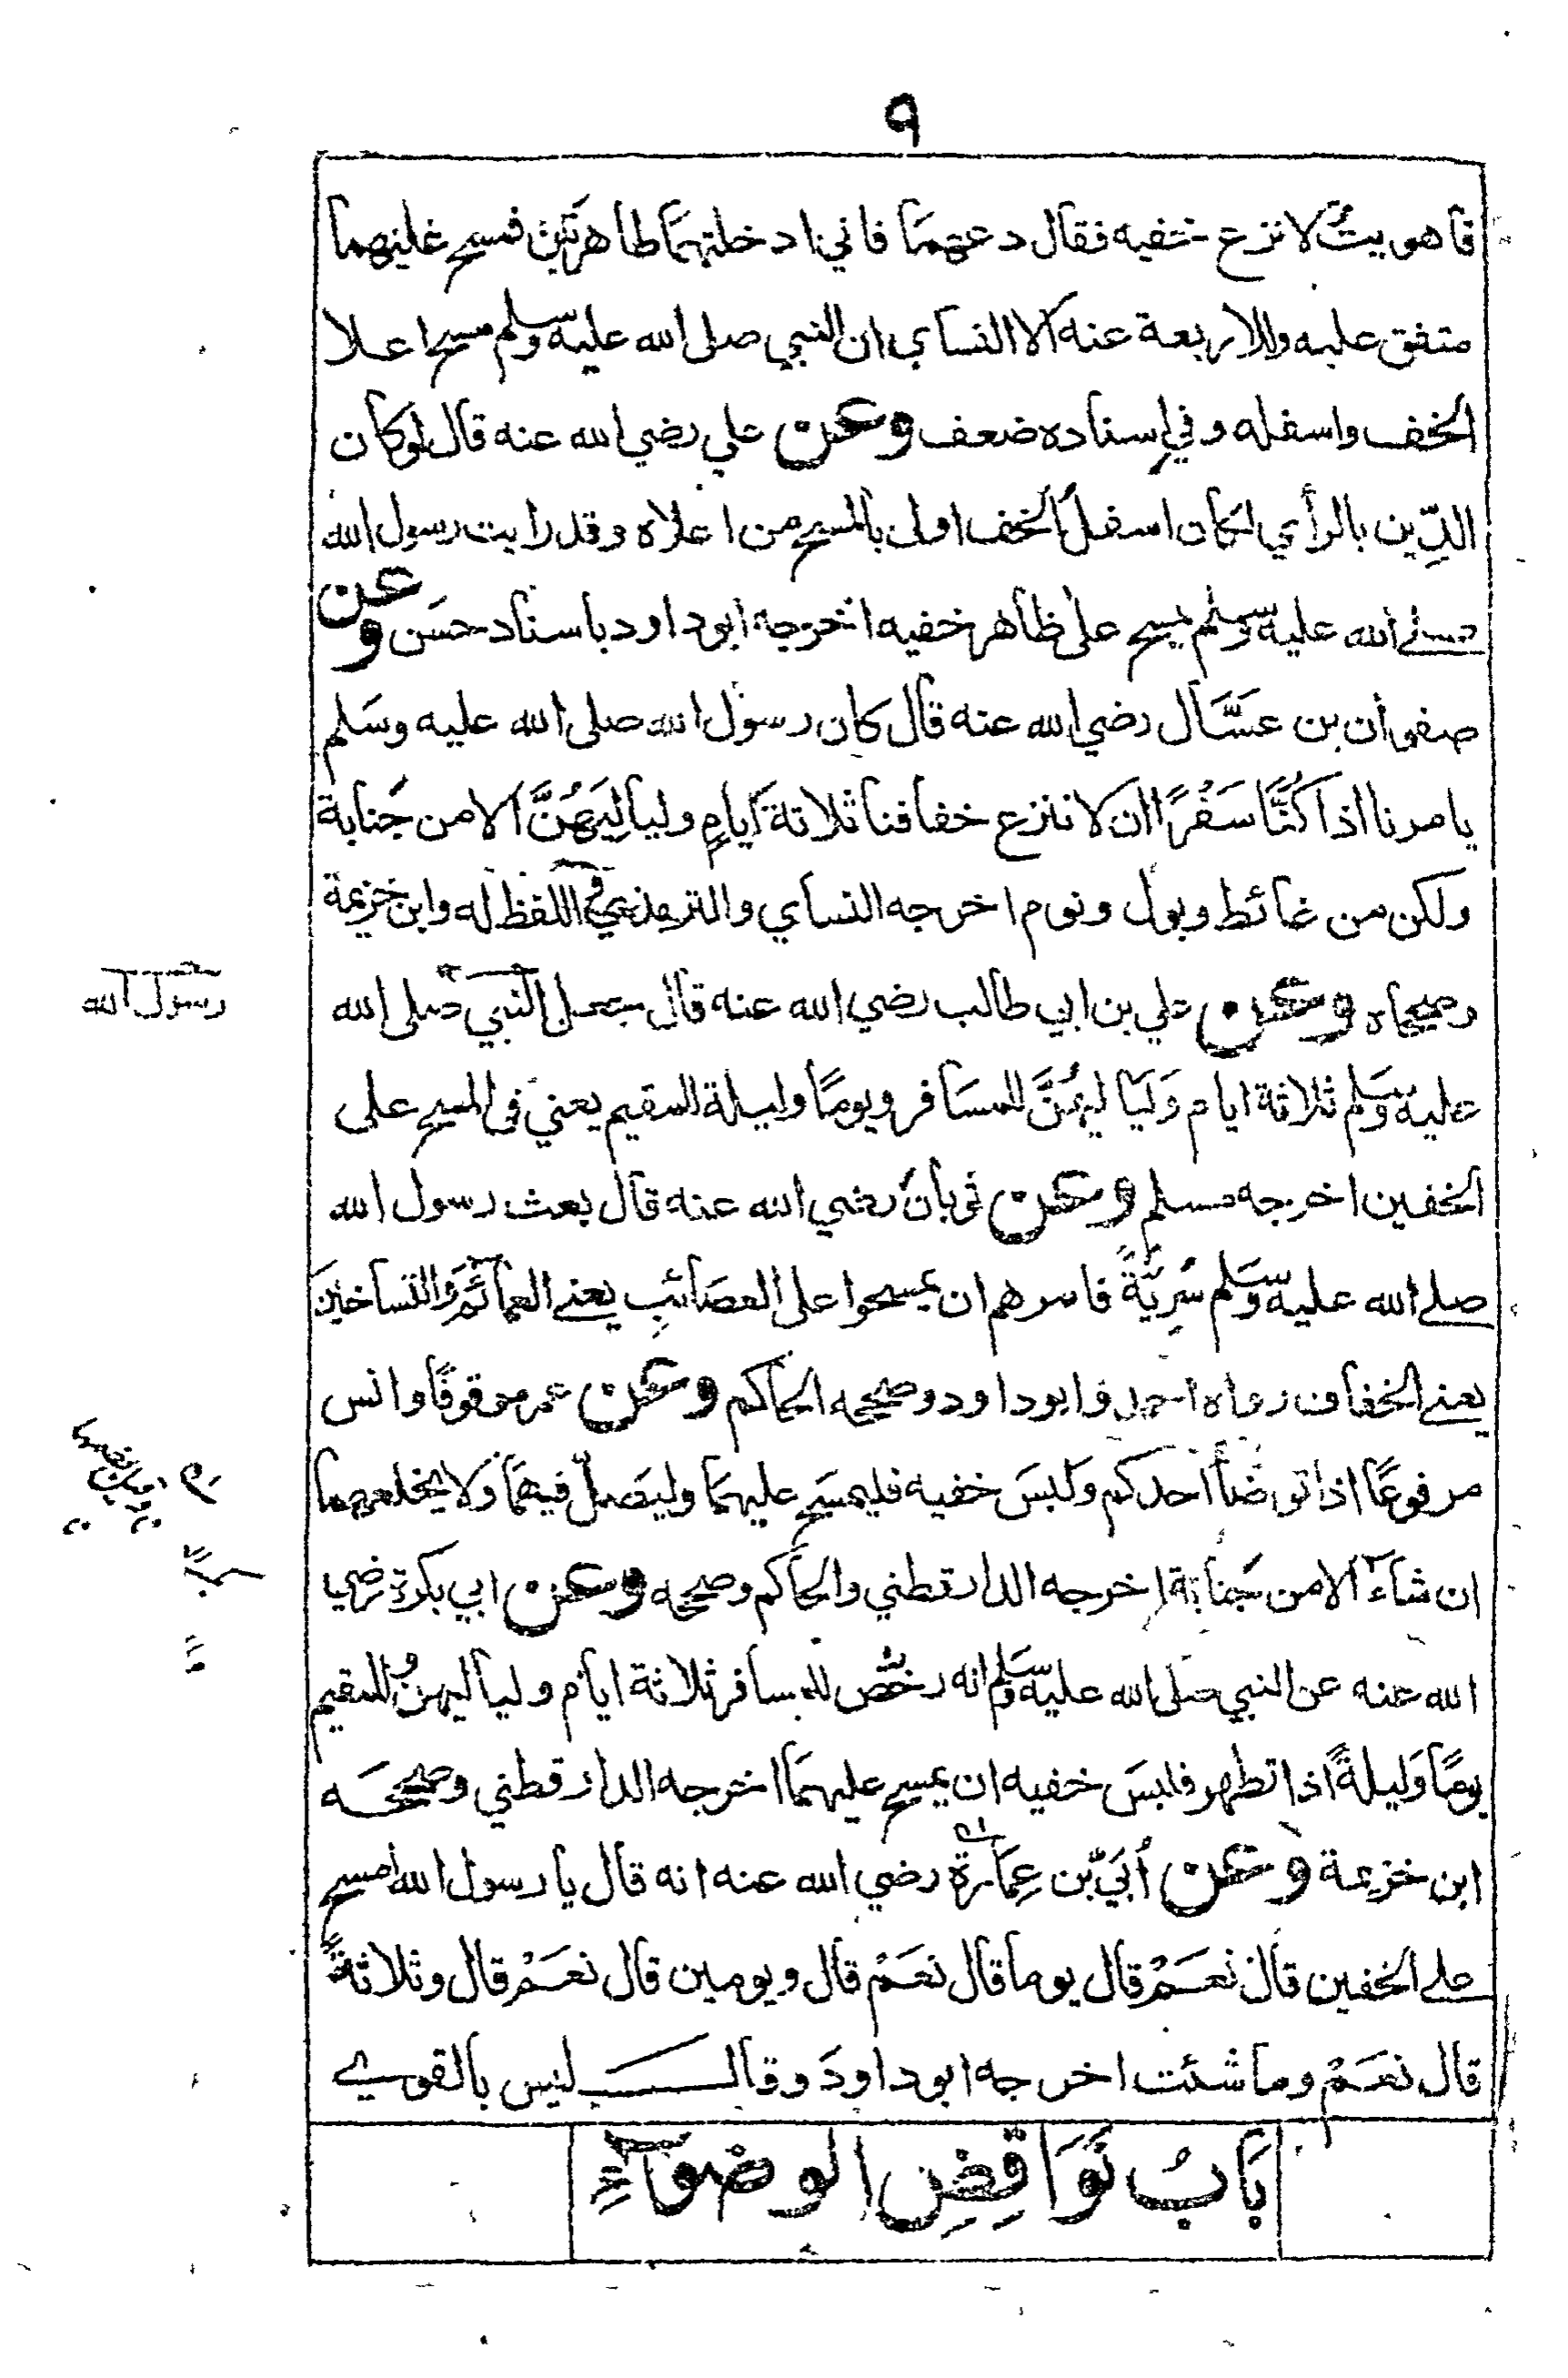 ٩
فاهويتُ لانزع خفيه فقال دعهما فاني ادخلتهما طاهرتين فمسح عليهما
متفق عليه وللاربعة عنه الا النساي ان النبي صلى الله عليه وسلم مسح اعلا
الخف واسفله وفي إسناده ضعف وعن علي رضي الله عنه قال لوكان
الدِّين بالرأي لكان اسفلُ الخف اولى بالمسح من اعلاه وقد رايت رسول الله
صلے الله عليه وسلم يمسح على ظاهر خفيه اخرجه ابوداود باسناد حسَن وعن
صفوان بن عسَّال رضي الله عنه قال كان رسول الله صلى الله عليه وسَلم
يامرنا اذا كُنَّا سَفْرًا ان لا ننزع خفافنا ثلاثة ايامٍ ولياليَهُنَّ الا من جَنابة
ولكن من غائط وبول ونوم اخرجه النساي والترمذي واللفظ له وابن خزيمة
وصححاه وعن علي بن ابي طالب رضي الله عنه قال جعل النبي صلى الله
رسول الله
عليه وسَلم ثلاثة ايام وَلَيَاليهُنَّ للمسَافر ويومًا وليلة للمقيم يعني فى المسح على
الخفين اخرجه مسلم وعن ثوبان رضي الله عنه قال بعث رسول الله
صلے الله عليه وسَلم سَرِيَّةً فامرهم ان يمسحوا على العصَائبِ يعنے العمائمَ والتسَاخين
يعنے الخفاف رواه احمد وابوداود وصححه الحاكم وعن عمر موقوفًا وانس
مرفوعًا اذا توضأ احدكم ولبسَ خفيه فليمسَح عليهمَا وليصَلّ فيهمَا ولا يخلعهما
ان شاءَ الا من جَنَابة اخرجه الدارقطني والحاكم وصححه وعن ابي بكرة رضي
الله عنه عن النبي صلى الله عليه وسَلم انه رخَّص للمسافر ثلاثة ايام ولياليهنَّ وللمقيم
يومًا وَليلةً اذا تطهر فلبسَ خفيه ان يمسح عليهمَا اخرجه الدارقطني وصححَه
ابن خزيمة وعن أُبَيّ بن عِمَارة رضي الله عنه انه قال يا رسول الله امسح
علے الخفين قال نعَمْ قال يوما قال نعَمْ قال ويومين قال نعَمْ قال وثلاثةً
قال نعَمْ وما شئت اخرجه ابوداودَ وقال ليس بالقوي
بَابُ نَوَاقِضِ الوضوءِ